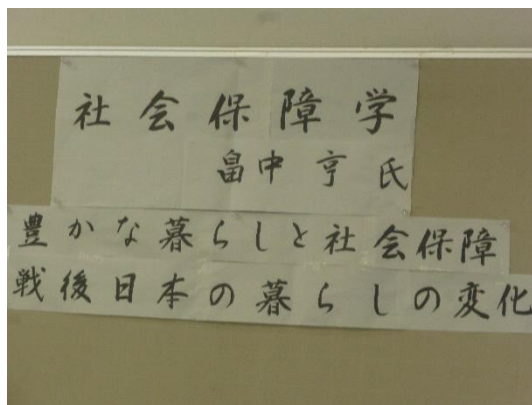 社会保障学
畠中亨氏
豊かな暮らしと社会保障
戦後日本の暮らしの変化